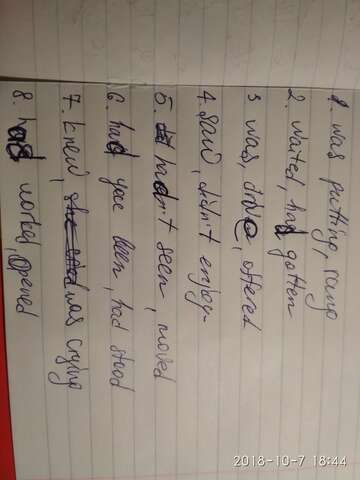 1. was putting, rang
2. waited, had gotten
3 was, drove, offered
4. saw, didn't enjoy
5. hadn't seen, moved
6. had you been, had stood
7. knew, was crying
8. had worked, opened
2018-10-7 18:44